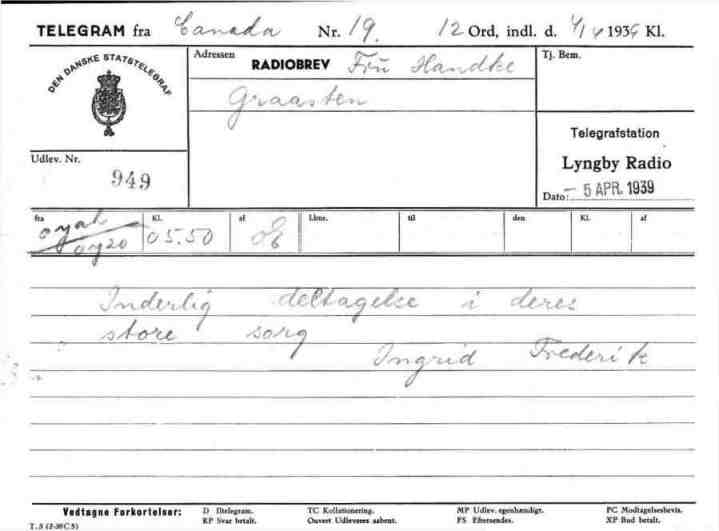 TELEGRAM fra Canada Nr. 19. 12 Ord, indl. d. 4/4 1939 Kl.
DEN DANSKE STATSTELEGRAF
Adressen RADIOBREV Fru Handke
Graasten
Tj. Bem.
Udlev. Nr.
949
Telegrafstation
Lyngby Radio
Dato: - 5 APR. 1939
fra Kl. af Lbnr. til den Kl. af
oyah 05.50
oy20
Inderlig deltagelse i deres
store sorg
Ingrid Frederik
Vedtagne Forkortelser: D Iltelegram. TC Kollationering. MP Udlev. egenhændigt. PC Modtagelsesbevis.
RP Svar betalt. Ouvert Udleveres aabent. FS Eftersendes. XP Bud betalt.